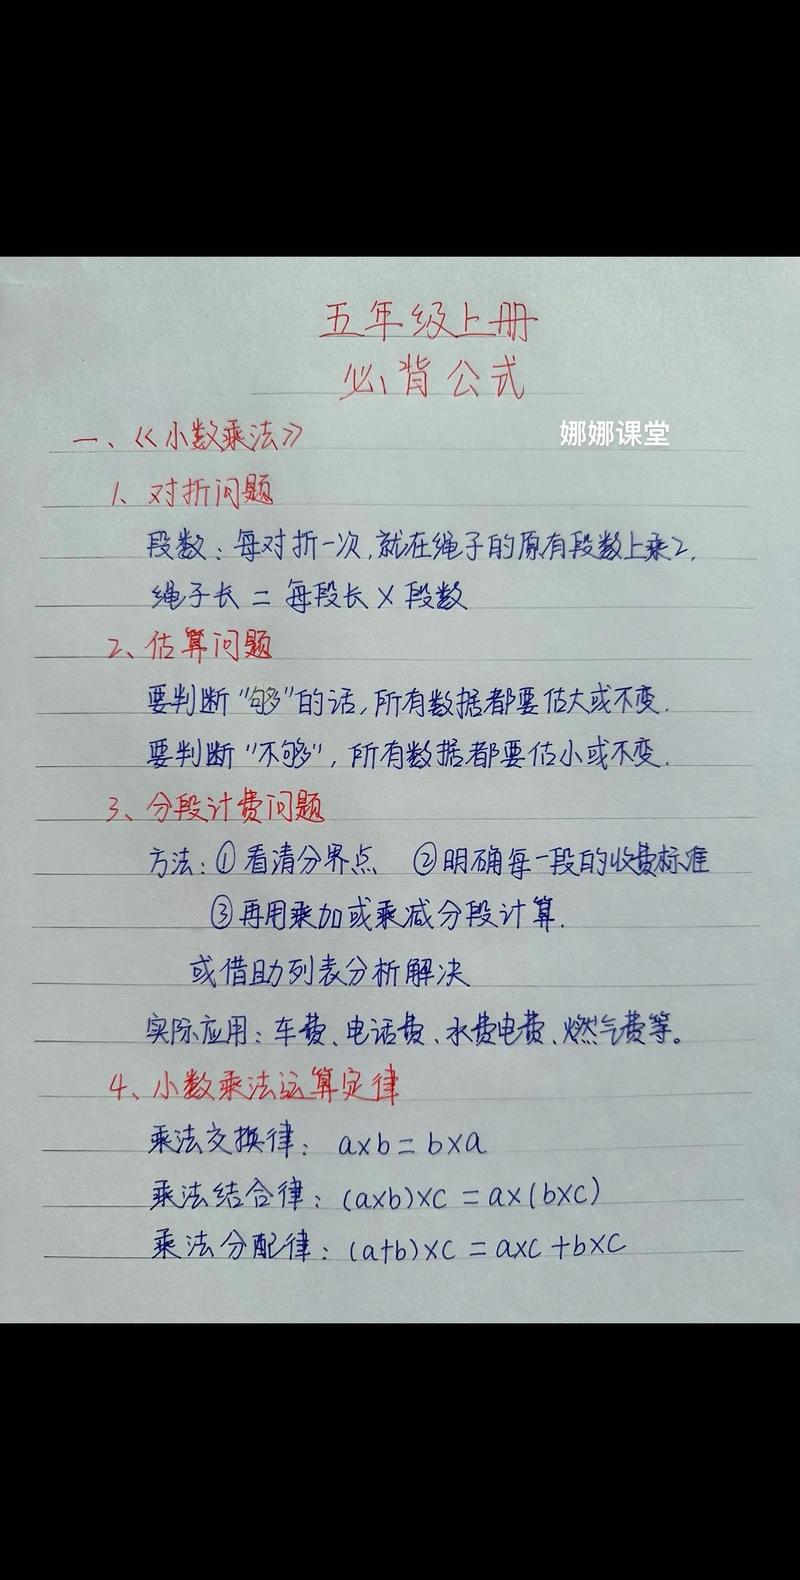 五年级上册
必背公式
一、《小数乘法》
娜娜课堂
1、对折问题
段数：每对折一次，就在绳子的原有段数上乘2.
绳子长 = 每段长 × 段数
2、估算问题
要判断"够"的话，所有数据都要估大或不变.
要判断"不够"，所有数据都要估小或不变.
3、分段计费问题
方法：①看清分界点 ②明确每一段的收费标准
③再用乘加或乘减分段计算.
或借助列表分析解决
实际应用：车费、电话费、水费电费、燃气费等。
4、小数乘法运算定律
乘法交换律： a×b=b×a
乘法结合律：(a×b)×c=a×(b×c)
乘法分配律：(a+b)×c=a×c+b×c